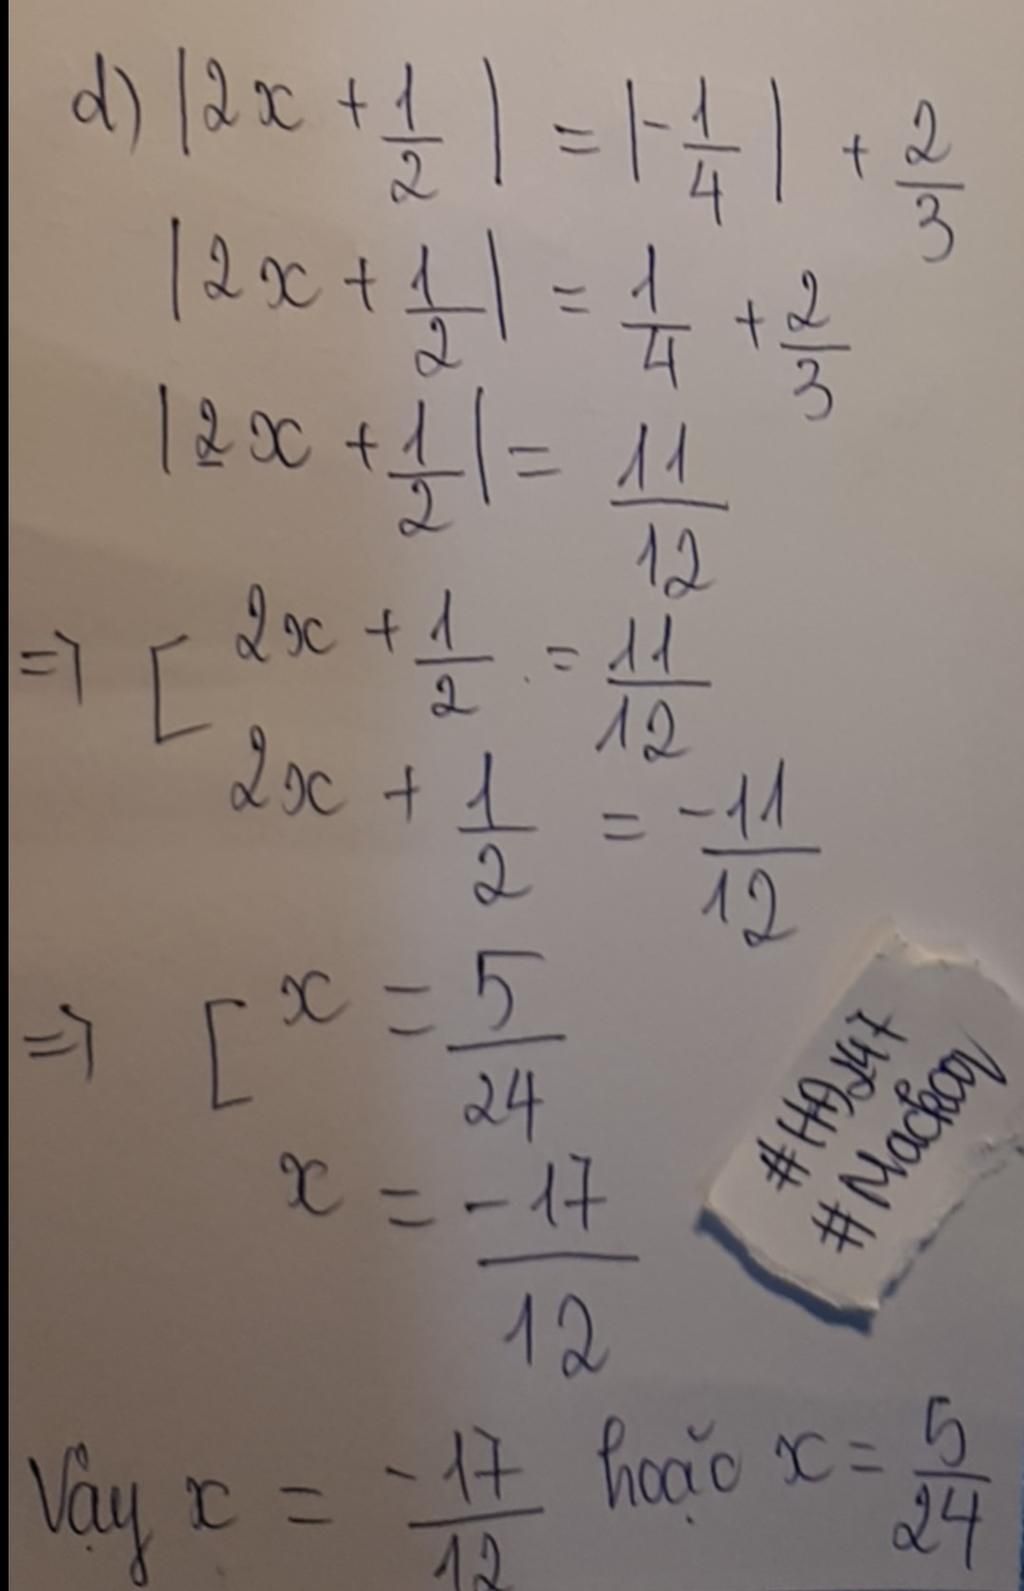 d) |2x + 1/2| = |-1/4| + 2/3
|2x + 1/2| = 1/4 + 2/3
|2x + 1/2| = 11/12
=> [ 2x + 1/2 = 11/12
2x + 1/2 = -11/12
=> [ x = 5/24
x = -17/12
Vậy x = -17/12 hoặc x = 5/24